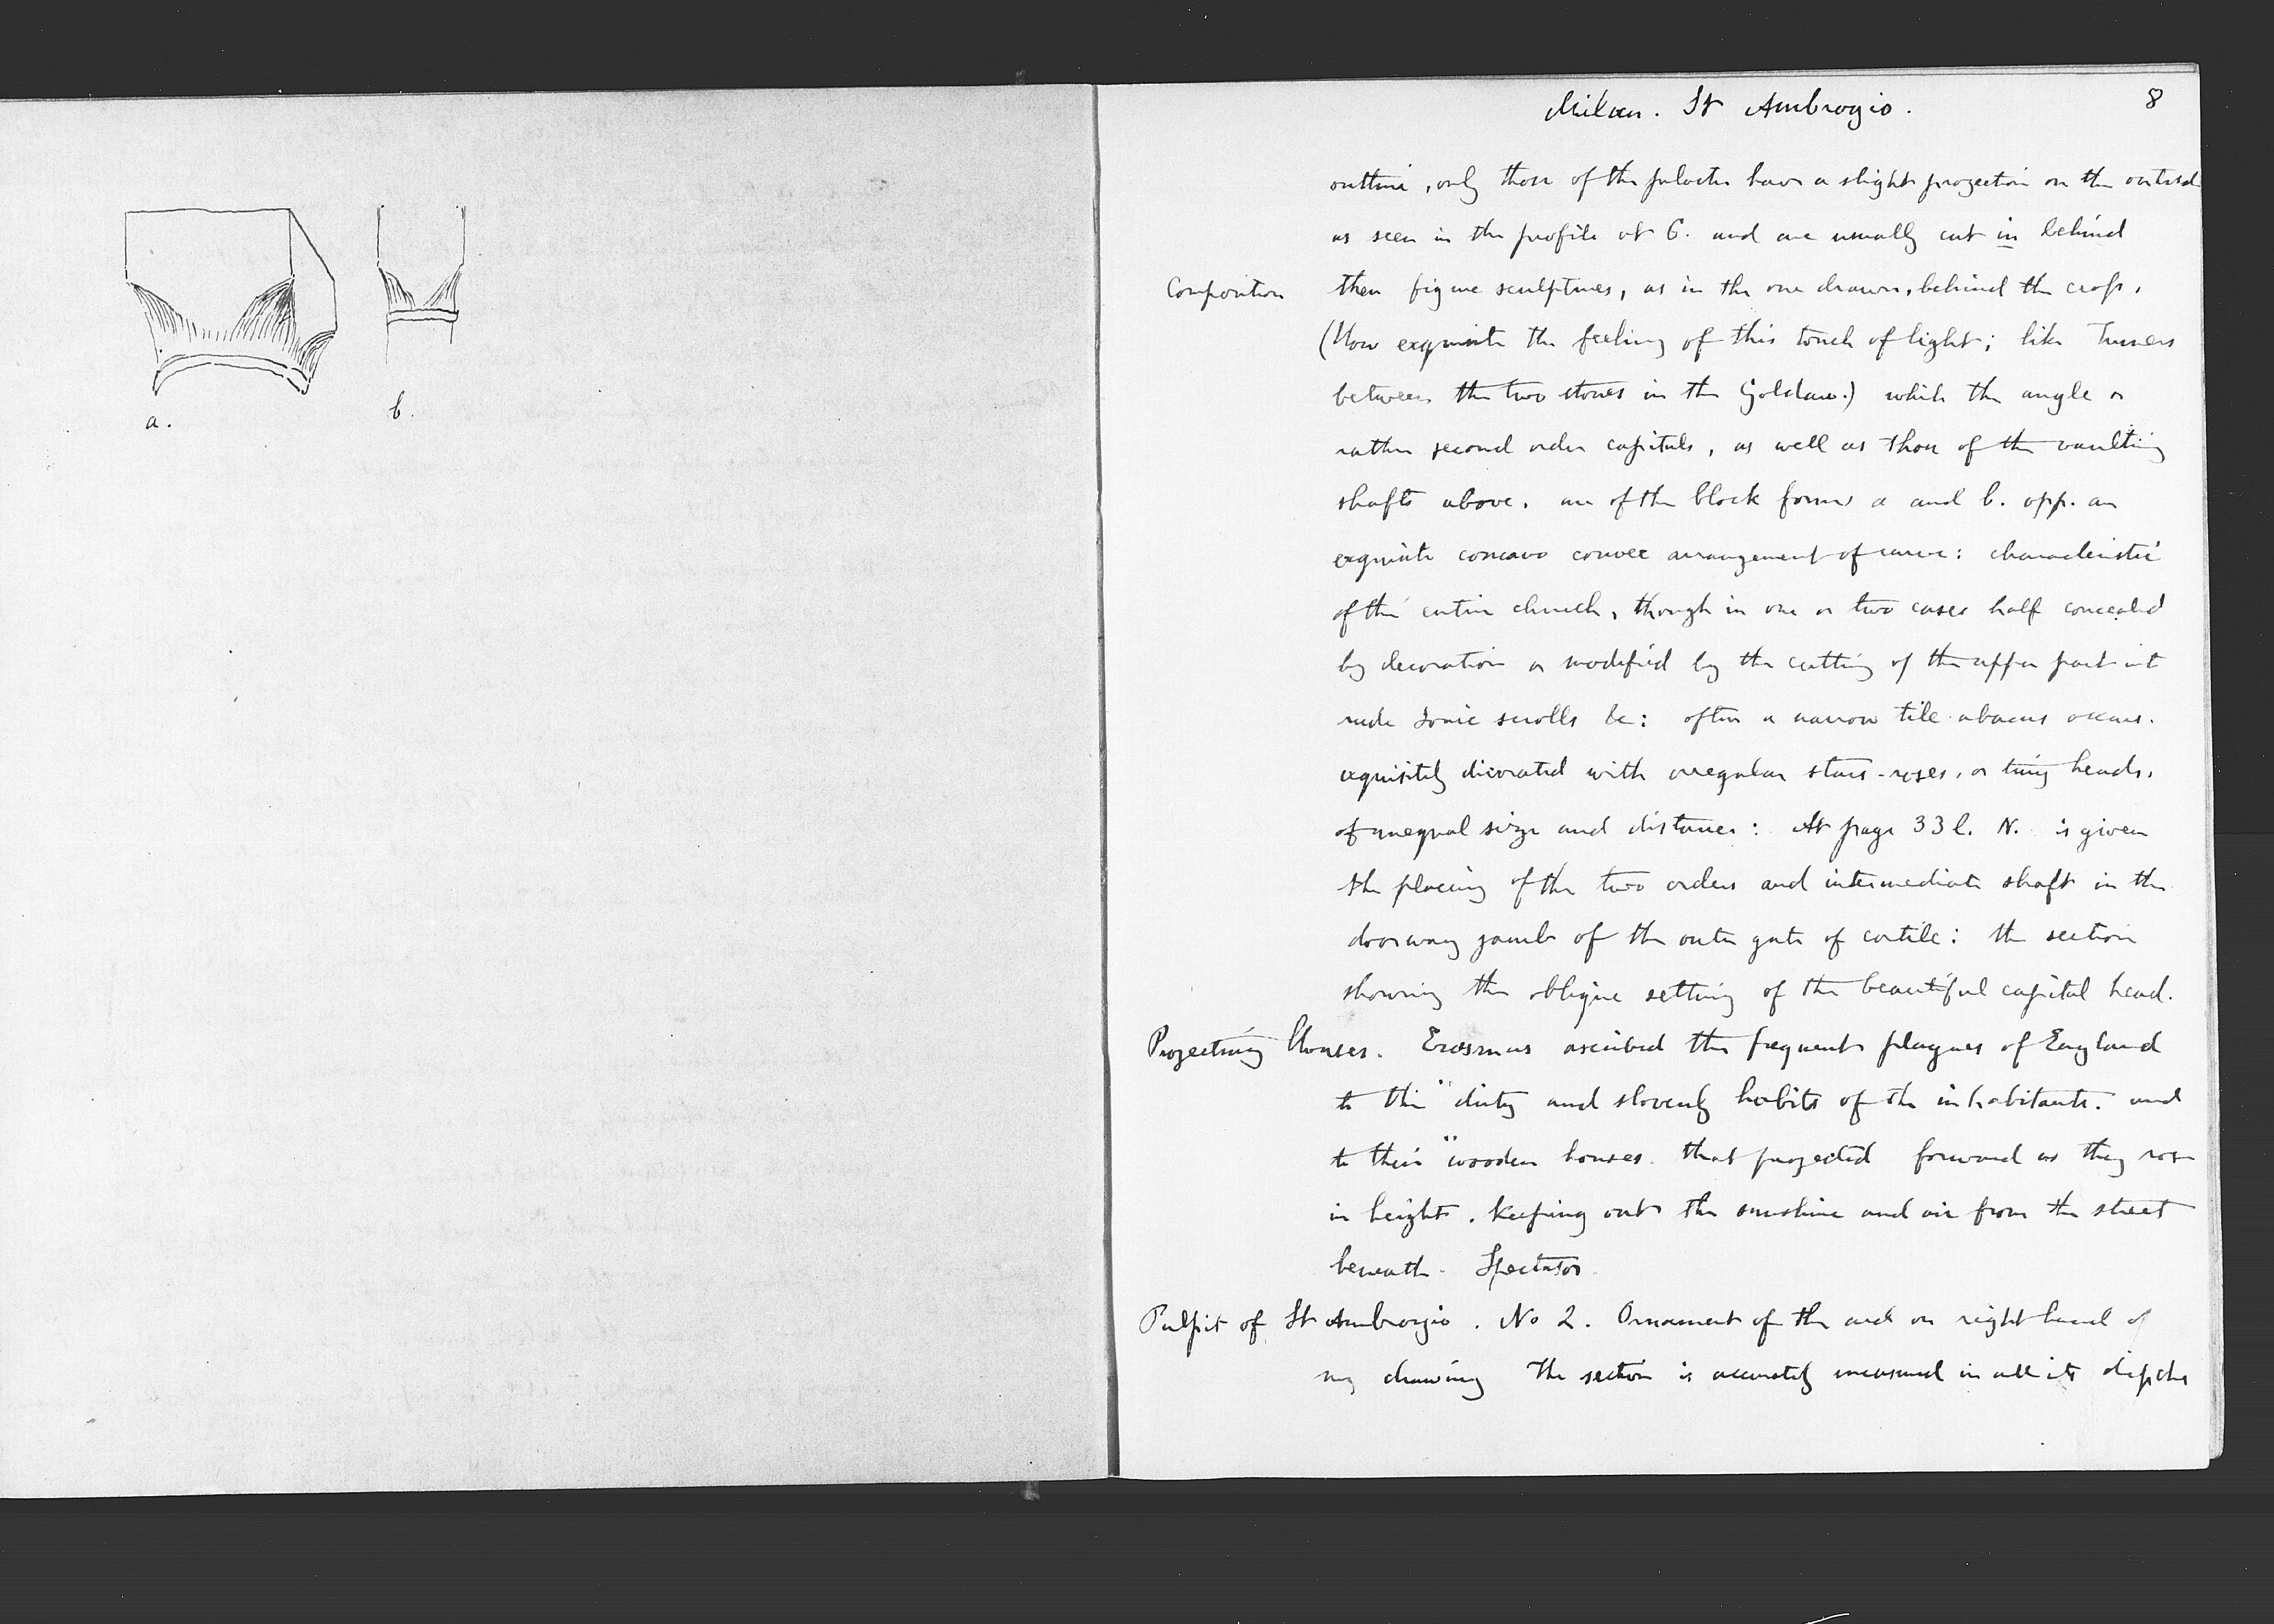 a.
b.
Milan. St Ambrogio.
8
outline, only those of the have a slight projection on the outside
as seen in the profile at 6. and are usually cut in behind
Composition
their figure sculptures, as in the one drawn, behind the
(How exquisite the feeling of this touch of light; like Turners
between the two stones in the Goldau.) while the angle or
rather second order capitals, as well as those of the vaulting
shafts above, are of the block forms a and b. opp. an
exquisite concavo convex arrangement of curve: characteristic
of the entire church, though in one or two cases half concealed
by decoration or modified by the cutting of the upper part into
rude Ionic scrolls &c: often a narrow tile abacus occurs.
exquisitely decorated with irregular stars - roses, or tiny heads,
of unequal size and distance: At page 33 l. N. is given
the placing of the two orders and intermediate shaft in the
doorway jamb of the outer gate of cortile: the section
showing the oblique setting of the beautiful capital head.
Projecting Houses. Erasmus ascribed the frequent plagues of England
to the "dirty and slovenly habits of the inhabitants. and
to their "wooden houses. that projected forward as they rose
in height, keeping out the sunshine and air from the street
beneath. Spectator
Pulpit of St Ambrogio. No 2. Ornament of the arch on right hand of
my drawing The section is accurately measured in all its depths